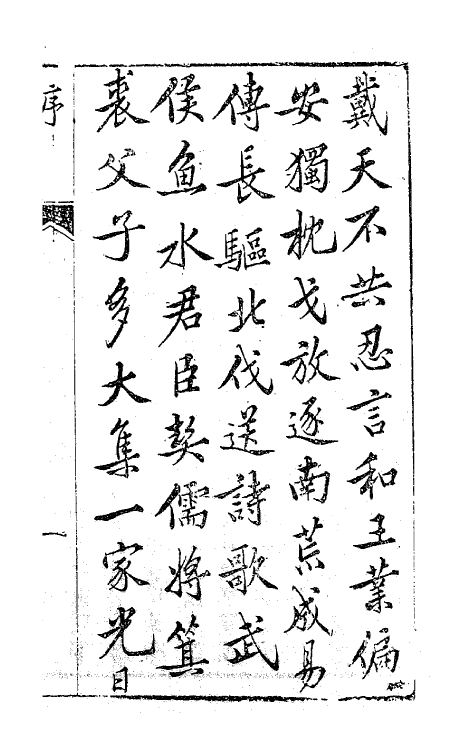 戴天不共忍言和王業偏
安獨枕戈放逐南荒成易
傳長驅北伐送詩歌武
侯魚水君臣契儒將箕
裘父子多大集一家光日
序
一